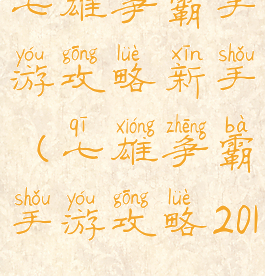 七雄争霸手
yóu gōng lüè xīn shǒu
游攻略新手
qī xióng zhēng bà
(七雄争霸
shǒu yóu gōng lüè
手游攻略201